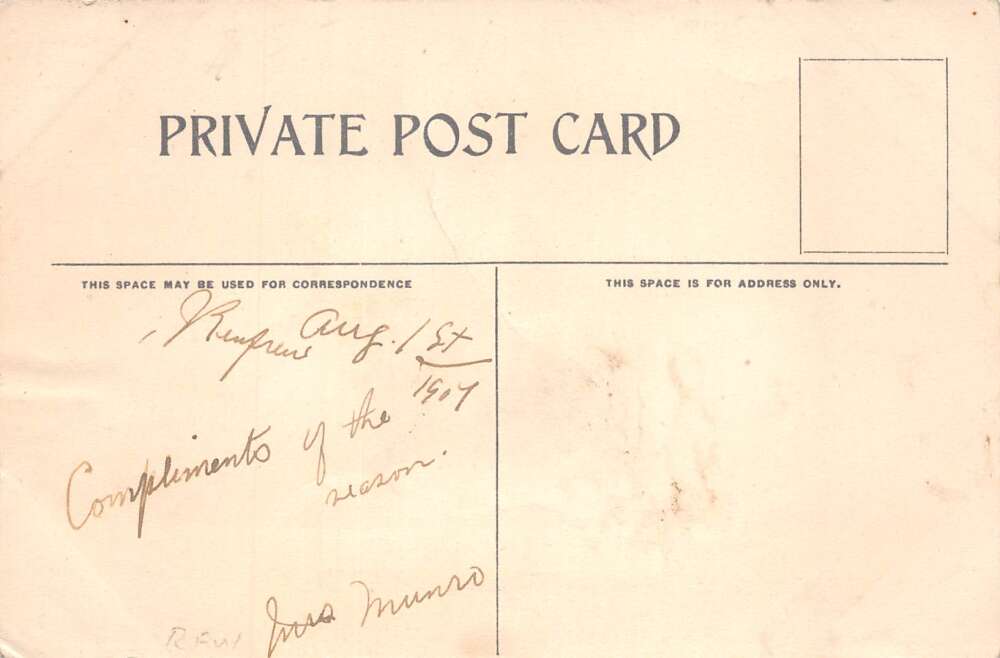 PRIVATE POST CARD
THIS SPACE MAY BE USED FOR CORRESPONDENCE
THIS SPACE IS FOR ADDRESS ONLY.
Renfrew Aug. 1st
1907
Compliments of the
season.
Munro